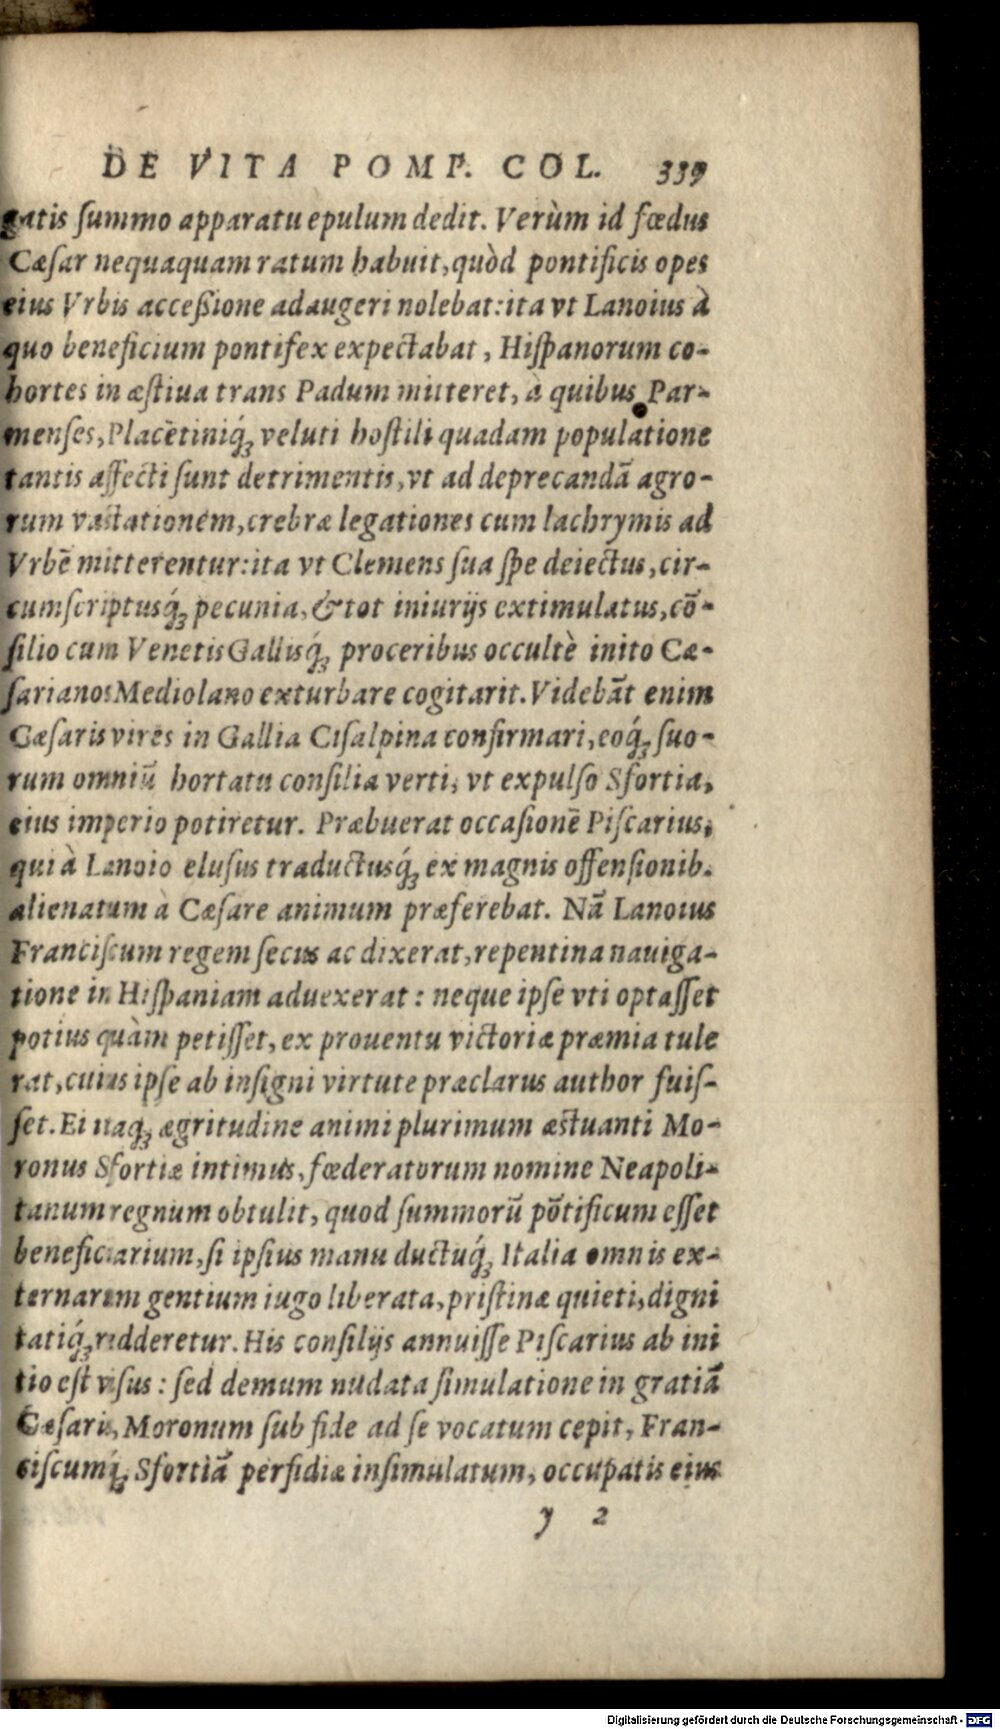 DE VITA POMP. COL. 339
gatis ſummo apparatu epulum dedit. Verùm id fœdus
Cæſar nequaquam ratum habuit, quòd pontificis opes
eius Vrbis acceßione adaugeri nolebat: ita vt Lanoius à
quo beneficium pontifex expectabat, Hiſpanorum co-
hortes in æſtiua trans Padum mitteret, à quibus Par-
menſes, Placẽtiniq́ꝫ veluti hoſtili quadam populatione
tantis affecti ſunt detrimentis, vt ad deprecandã agro-
rum vastationem, crebræ legationes cum lachrymis ad
Vrbẽ mitterentur: ita vt Clemens ſua ſpe deiectus, cir-
cumſcriptusq́ꝫ pecunia, & tot iniurijs extimulatus, cõ-
ſilio cum Venetis Gallisq́ꝫ proceribus occultè inito Cæ-
ſarianos Mediolano exturbare cogitarit. Videbãt enim
Cæſaris vires in Gallia Ciſalpina confirmari, eoq́ꝫ ſuo-
rum omniũ hortatu conſilia verti, vt expulſo Sfortia,
eius imperio potiretur. Præbuerat occaſionẽ Piſcarius,
qui à Lanoio eluſus traductusq́ꝫ ex magnis offenſionib.
alienatum à Cæſare animum præferebat. Nã Lanoius
Franciſcum regem ſecus ac dixerat, repentina nauiga-
tione in Hiſpaniam aduexerat: neque ipſe vti optaſſet
potius quàm petiſſet, ex prouentu victoriæ præmia tule
rat, cuius ipſe ab inſigni virtute præclarus author fuiſ-
ſet. Ei itaqꝫ ægritudine animi plurimum æstuanti Mo-
ronus Sfortiæ intimus, fœderatorum nomine Neapoli-
tanum regnum obtulit, quod ſummorũ põtificum eſſet
beneficiarium, ſi ipſius manu ductuq́ꝫ Italia omnis ex-
ternarum gentium iugo liberata, priſtinæ quieti, digni
tatiq́ꝫ redderetur. His conſilijs annuiſſe Piſcarius ab ini
tio eſt viſus: ſed demum nudata ſimulatione in gratiã
Cæſaris, Moronum ſub fide ad ſe vocatum cepit, Fran-
ciſcumq́ꝫ Sfortiã perfidiæ inſimulatum, occupatis eius
y 2
Digitalisierung gefördert durch die Deutsche Forschungsgemeinschaft - DFG